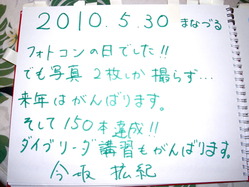 2010.5.30 まなづる
フォトコンの日でした!!
でも写真2枚しか撮らず…
来年はがんばります。
そして150本達成!!
ダイブリーダ講習もがんばります。
今坂 拡紀